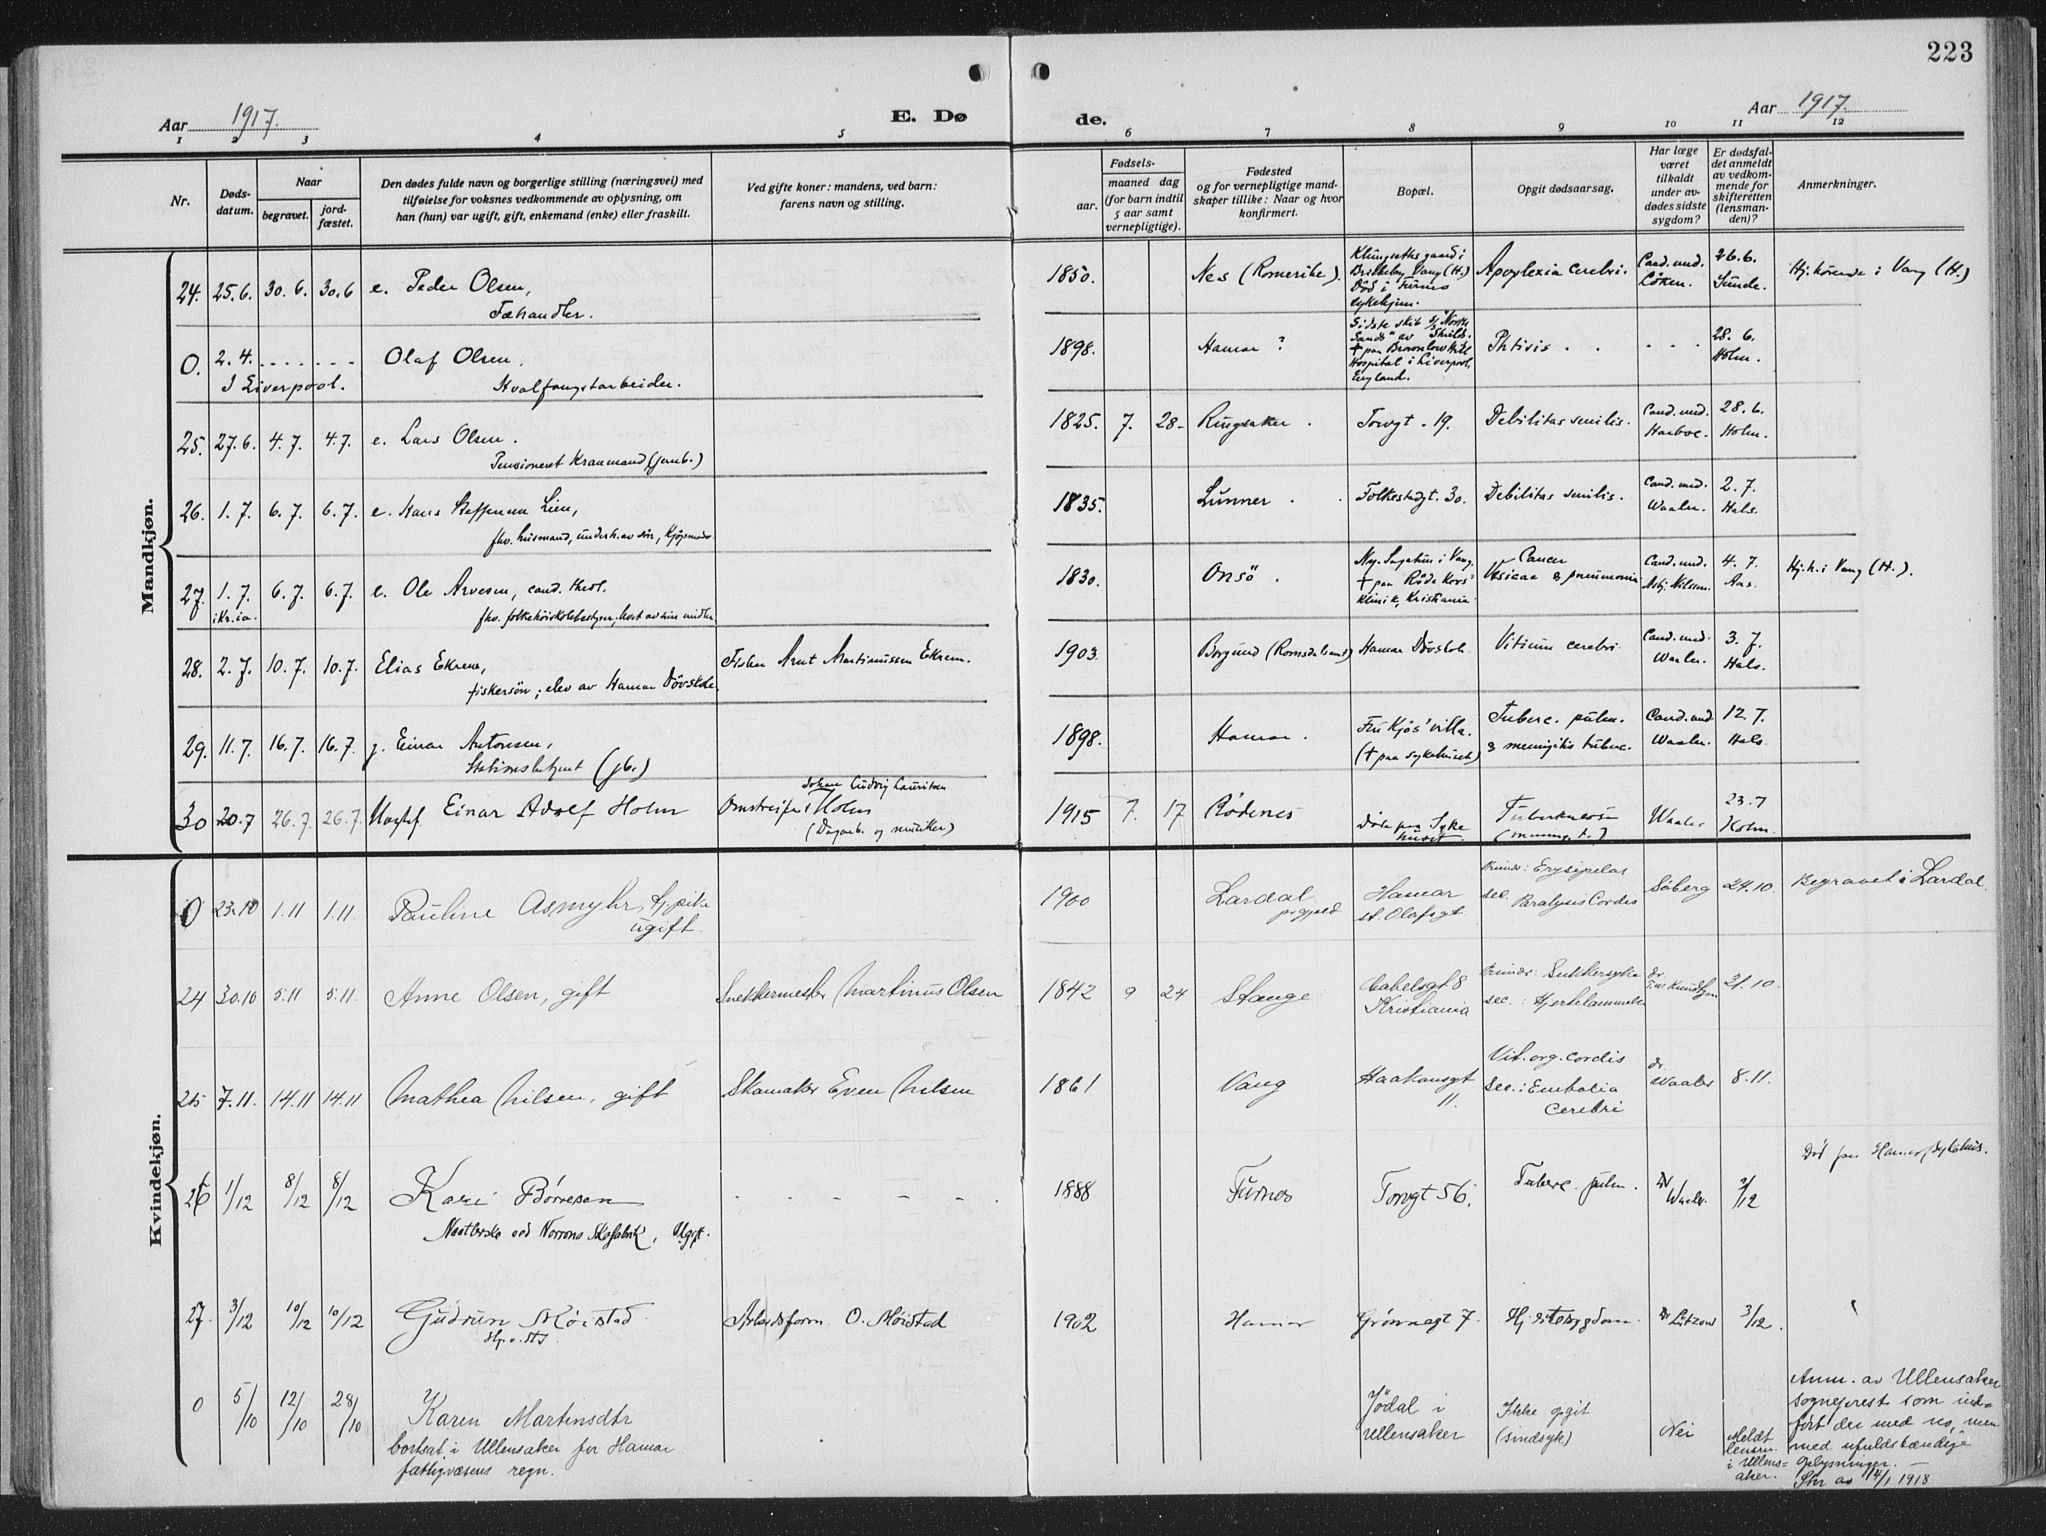 223
Aar 1917.
E. Dø
de.
Aar 1917.
1 2 3 4 5 6 7 8 9 10 11 12
Nr.
Døds-
datum.
Naar
begravet.
jord-
fæstet.
Den dødes fulde navn og borgerlige stilling (næringsvei) med
tilføielse for voksnes vedkommende av oplysning, om
han (hun) var ugift, gift, enkemand (enke) eller fraskilt.
Ved gifte koner: mandens, ved barn:
farens navn og stilling.
Fødsels-
aar.
maaned dag
(for barn indtil
5 aar samt
vernepligtige).
Fødested
og for vernepligtige mand-
skaper tillike: Naar og hvor
konfirmert.
Bopæl.
Opgit dødsaarsag.
Har læge
været
tilkaldt
under av-
dødes sidste
sygdom?
Er dødsfal-
det anmeldt
av vedkom-
mende for
skifteretten
(lensman-
den)?
Anmerkninger.
Mandkjøn.
24. 25.6. 30.6. 30.6 e. Peder Olsen,
Fæhandler.
1850. Nes (Romerike).
Klungseths gaard i
Briskeby, Vang (H.)
Død i
sykehjem.
Apoplexia cerebri. Cand. med.
Löken.
26.6.
Sunde.
Hj.hörende i Vang (H.)
0. 2.4. . . . . . . Olaf Olsen,
I Liverpool. Hvalfangstarbeider.
1898. Hamar ?
Sidste skib s/s "North
Sands" av
+ paa Brownlow Hill
Hospital i Liverpool,
England.
Phtisis . . . . .
28.6.
Holm.
25. 27.6. 4.7. 4.7. e. Lars Olsen.
Pensioneret Kranmand (jernb.)
1825. 7. 28. Ringsaker . Torvgt. 19. Debilitas senilis. Cand. med.
Harboe.
28.6.
Holm.
26. 1.7. 6.7. 6.7. e. Hans Steffensen Lien,
fhv. husmand, underh. av sön,
1835. Lunner . . Folkestadgt. 30. Debilitas senilis. Cand. med.
Waaler.
2.7.
Hals.
27. 1.7. 6.7. 6.7. e. Ole Arvesen, cand. theol.
i Kr.ia. fhv. folkehöiskolebestyrer, levet av sine midler.
1830. Onsö .
Ny. Sagatun i Vang.
+ paa Röde Kors'
Klinik, Kristiania
Cancer
Vesicae & pneumonia
Cand. med.
Asbj. Nilssen.
4.7.
Aas.
Hj.h. i Vang (H.).
28. 2.7. 10.7. 10.7. Elias Ekrem,
fiskersön; elev av Hamar Dövskole.
Fisker Arnt Martinussen Ekrem.
1903. Borgund (Romsdals amt) Hamar Dövskole Vitium cerebri Cand. med.
Waaler.
3.7.
Hals.
29. 11.7. 16.7. 16.7. g. Einar Antonsen,
Stationsbetjent (jb.)
1898. Hamar.
Fru Kjös' villa.
(+ paa sykehuset)
Tuberc. pulm.
& meningitis tuberc.
Cand. med.
Waaler.
12.7.
Hals
30 20.7 26.7. 26.7. Ugift Einar Adolf Holm
Johan Ludvig Lauritsen
Omstreifer Holm
(Dagarb. og musiker)
1915 7. 17 Rödenes
Döde paa Syke
huset
Tuberkulose
(mening. t.)
Waaler
23.7
Holm.
Kvindekjøn.
0 23.10 1.11 1.11. Pauline Asmyhr, tj.pike
ugift.
1900 Lardal
prgjeld
Hamar
st. Olafsgt.
Primær: Erysipelas
sec. Paralysis Cordis
Söberg 24.10. Begravet i Lardal
24 30.10 5.11 5.11. Anne Olsen, gift
Snekkermester Martinus Olsen
1842 9 24 Stange
Cabelsgt 8
Kristiania
Primær: Sukkersyke
sec.: Hjertelammelse
dr.
31.10.
25 7.11. 14.11 14.11 Mathea Nilsen, gift
Skomaker Even Nilsen
1861 Vang Haakonsgt
11.
Vit. org. cordis
Sec.: Embolia
cerebri
dr.
Waaler
8.11.
26 1/12 8/12 8/12 Kari Börresen - - - - -
Naatlerske ved Norrøna Skofabrik, Ugift.
1888 Furnes Torvgt 56. Tuberc. pulm. Dr
Waaler.
3/12
Død paa Hamar sykehus.
27. 3/12 10/12 10/12 Gudrun Möistad
Arbeidsform O. Möistad
1902 Hamar Grønnegt 7. Hjertesygdom. Dr Lützow 3/12.
0 5/10 12/10 28/10 Karen Martinsdtr
bortsat i Ullensaker for Hamar
fattigvæsens regn.
Jödal i
Ullensaker
Ikke opgit
(sindsyk)
Nei
Meldt
lensm.
i Ullens-
aker.
Anm. av Ullensaker
sogneprest som ind-
fört der med no, men
med ufuldstændige
oplysninger. -
Skr av 14/1 1918